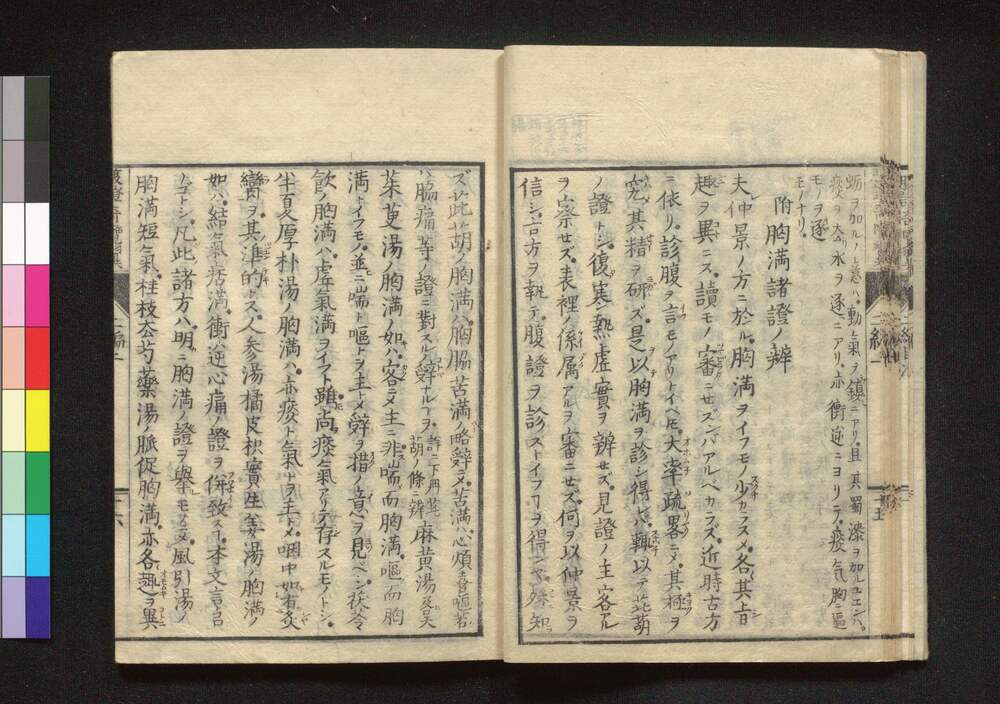 蛎ヲ加ル意ハ動氣ヲ鎮ニアリ且其蜀漆ヲ加ルユエンハ
痰ヲ去リ水ヲ逐ニアリ亦衝逆ニヨリテ痰气胸ニ逼
モノヲ逐モノナリ
附胸満諸證ノ辨
夫仲景ノ方ニ於ル胸満ヲイフモノ少カラスメ各其旨
趣ヲ異ニス讀モノ審ニセズンバアルベカラズ近時古方
ニ依リ診腹ヲ言モノアリトイヘ𪜈大率疏畧ニメ其極ヲ
究其精ヲ研ズ是以胸満ヲ診シ得レバ輙以テ茈葫
ノ證トシ復寒熱虚實ヲ辨セズ見證ノ主客アル
ヲ察セズ表裡ノ係属アルヲ審ニセズ何ヲ以仲景ヲ
信シ古方ヲ執テ腹證ヲ診ストイフヿヲ得ンヤ殊知
ズ茈葫ノ胸満ハ胸脇苦満ノ略辭ニメ苦満ハ心煩喜嘔若
ハ脇痛等ノ證ニ對スルノ辭ナルヿヲ許ニ下用茈葫ノ條ニ辨麻黄湯及呉
茱萸湯ノ胸満ノ如ハ客ニメ主ニ非喘而胸満嘔而胸
満トイフモノ並ニ喘ト嘔トヲ主トメ辭ヲ措ノ意ヲ見ベシ茯苓
飲ノ胸満ハ虚氣満ヲイフト雖尚痰氣アリテ存スルモノトシ
半夏厚朴湯ノ胸満ハ亦痰ト氣トヲ主トメ咽中如有炙
臠ヲ其準的トス人参湯橘皮枳實生姜湯ノ胸満ノ
如ハ結氣痞満衝逆心痛ノ證ヲ併致スヿ本文言
ノゴトシ凡此諸方ハ明ニ胸満ノ證ヲ舉モ又風引湯ノ
胸満短氣桂枝去芍藥湯ノ脈促胸満亦各趣ヲ異